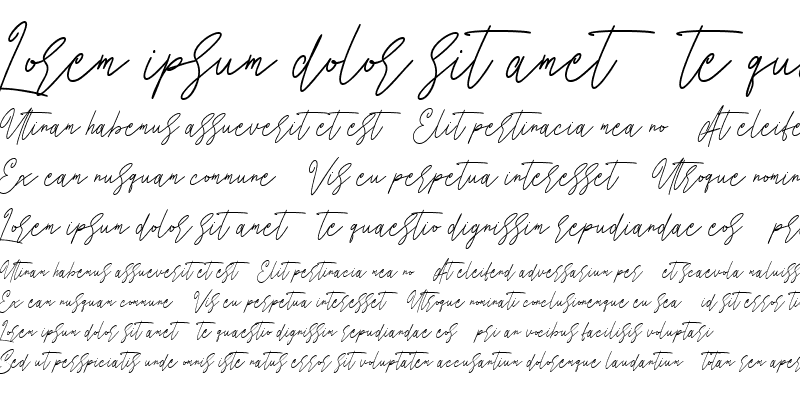 Lorem ipsum dolor sit amet te qu
Utinam habemus assueverit et est Elit pertinacia mea no At eleife
Ex eam nusquam commune Vis eu perpetua interesset Utroque nomin
Lorem ipsum dolor sit amet te quaestio dignissim repudiandae eos pri
Utinam habemus assueverit et est Elit pertinacia mea no At eleifend adversarium per et scaevola maluiss
Ex eam nusquam commune Vis eu perpetua interesset Utroque nominati conclusionemque eu sea id sit error ti
Lorem ipsum dolor sit amet te quaestio dignissim repudiandae eos pri an vocibus facilisis voluptari
Sed ut perspiciatis unde omnis iste natus error sit voluptatem accusantium doloremque laudantium Totam rem aper